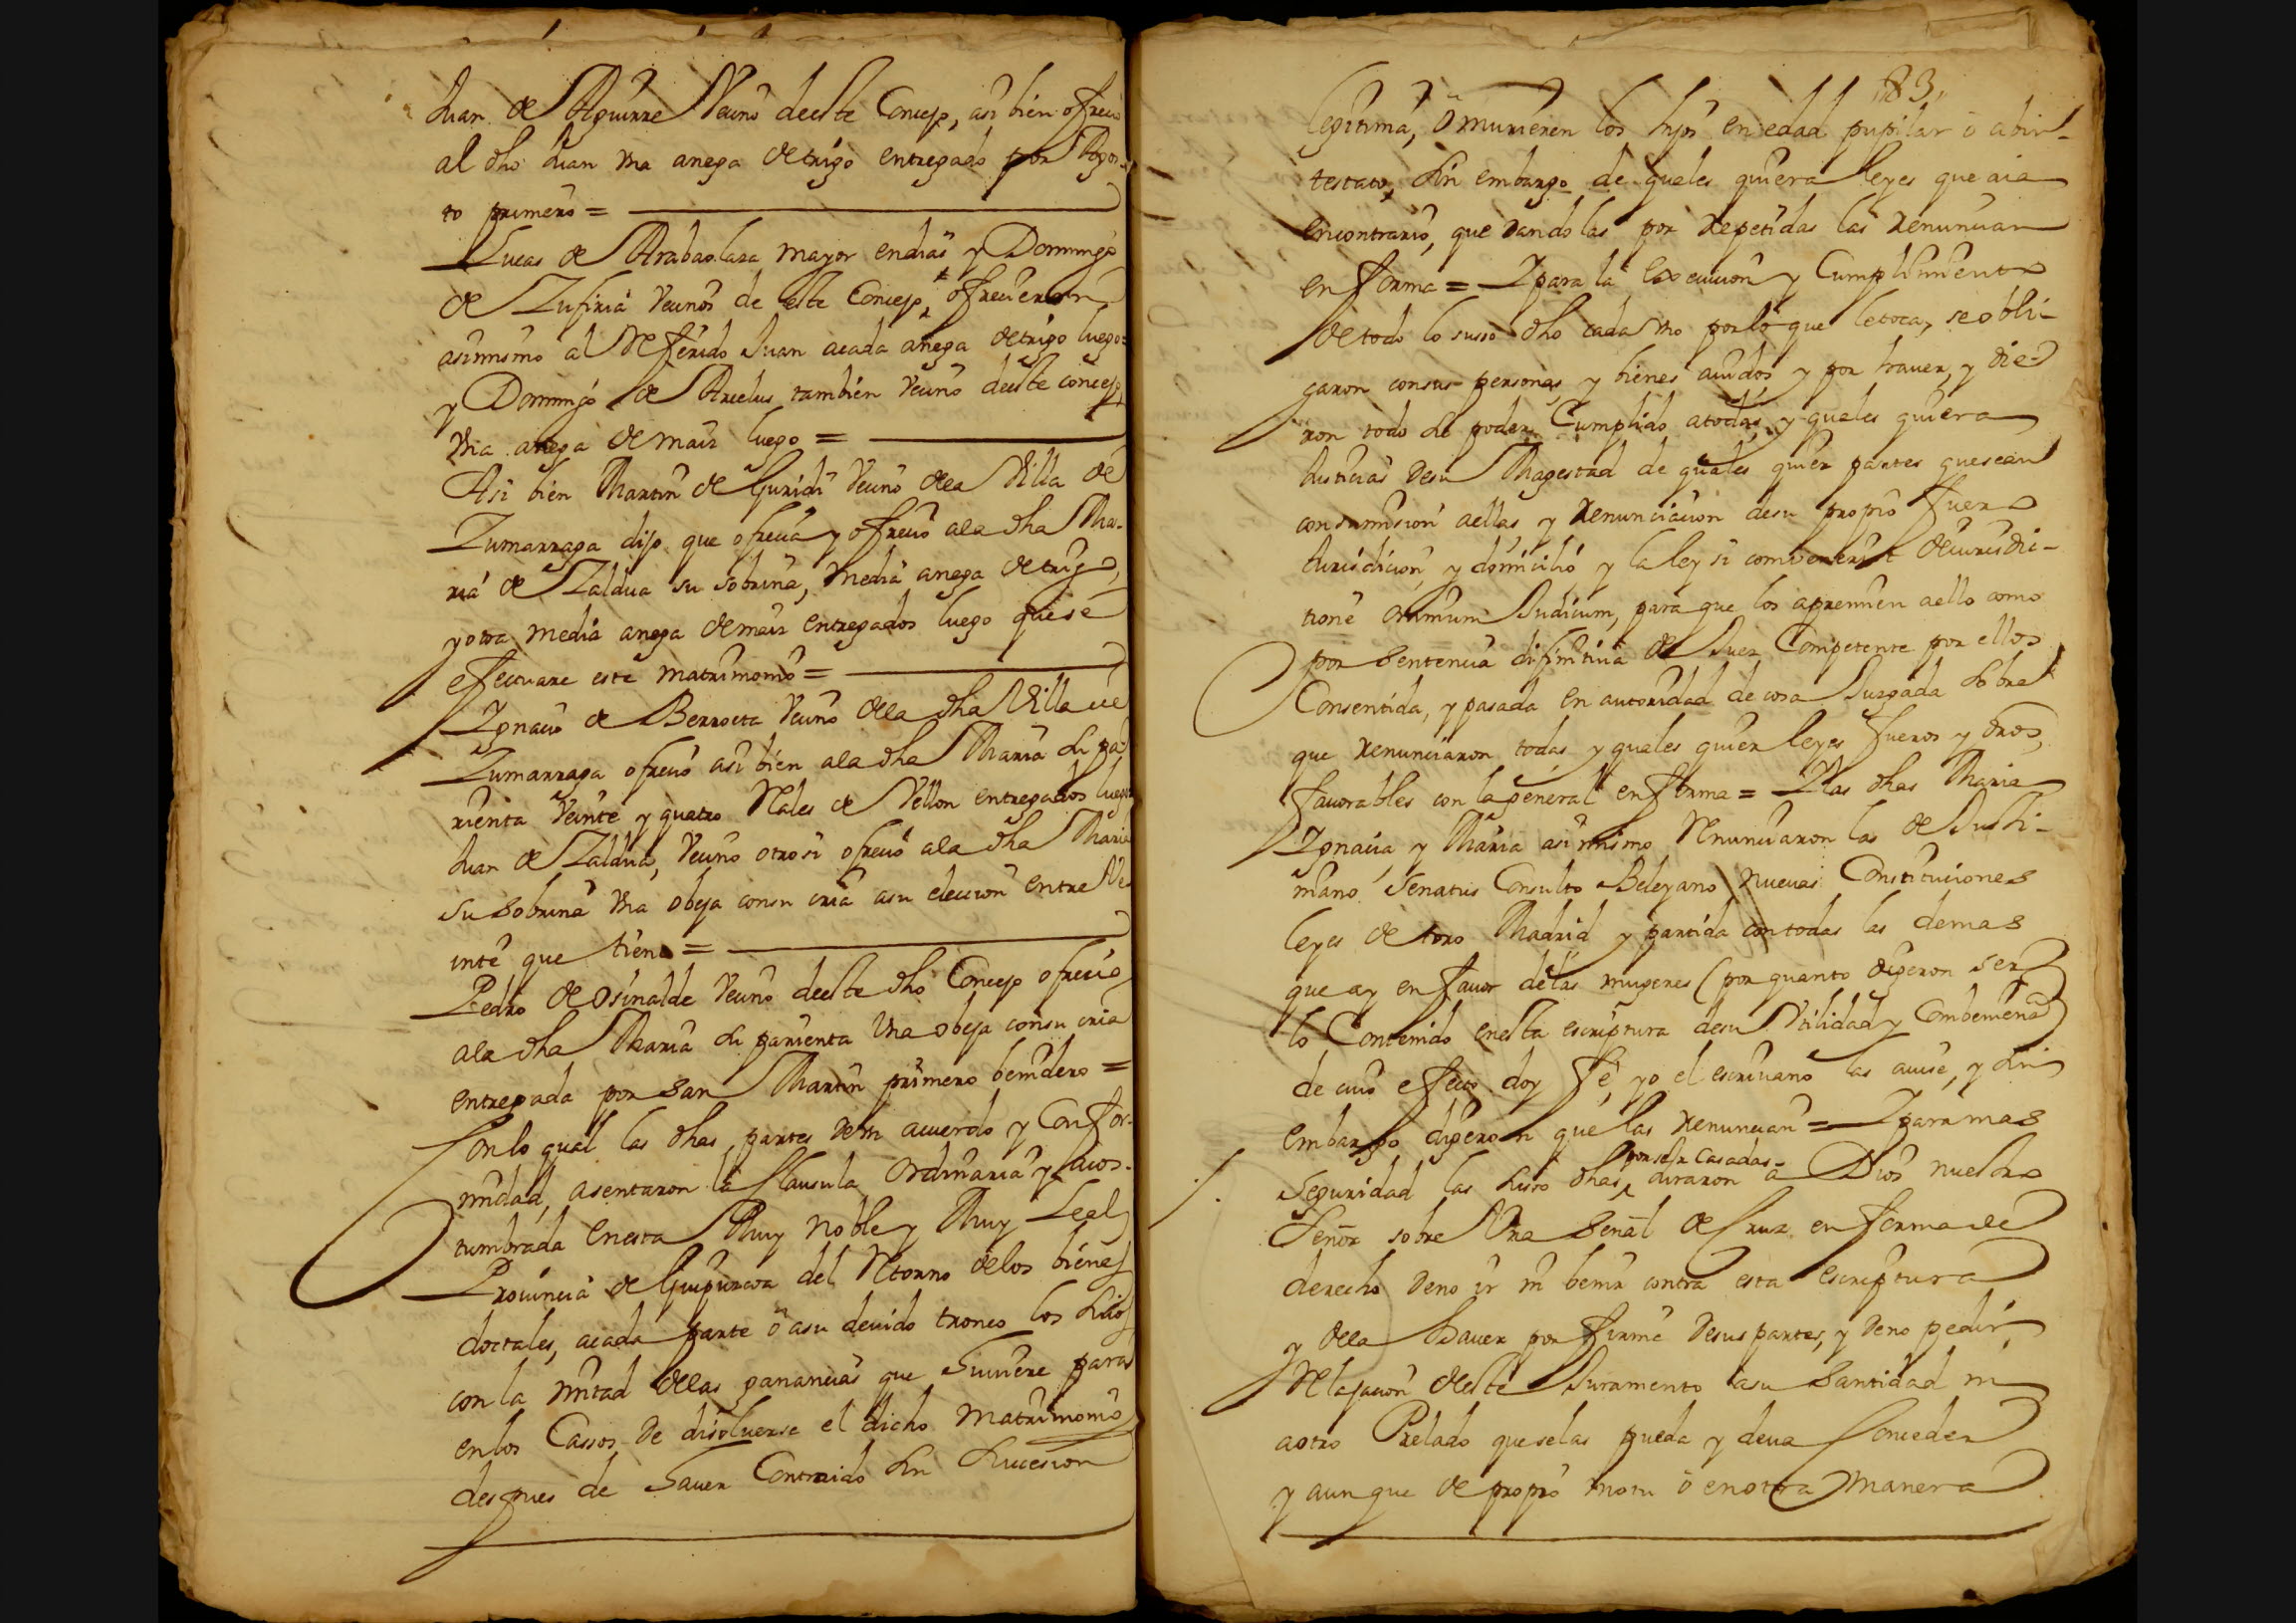 Juan de Aguirre Vecino deeste Concejo, asi bien ofrecio
al dho Juan Vna anega de trigo entregado por Agos-
to primero =
Lucas de Arabaolaza mayor en dias y Domingo
de Zufiria Vecinos de este Concejo, ofrecieron
asimismo al Referido Juan acada anega de trigo luego =
y Domingo de Arcelus tambien Vecino deeste concejo
Vna anega de maiz luego =
Asi bien Martin de Guridi Vecino dela Villa de
Zumarraga dijo que ofrecia y ofrecio ala dha Ma-
ria de Zaldua su sobrina, media anega de trigo,
y otra media anega de maiz entregados luego que se
efectuare este matrimonio =
Ygnacio de Berroeta Vecino dela dha Villa de
Zumarraga ofrecio asi bien ala dha Maria su pa-
rienta Veinte y quatro Rales de Vellon entregados luego
Juan de Zaldua, Vecino otrosi ofrecio ala dha Maria
su sobrina Vna obeja consu cria asu eleccion entre Ve-
inte que tiene =
Pedro de Osinalde Vecino deeste dho Concejo ofrecio
ala dha Maria su parienta Vna obeja consu cria
entregada por san Martin primero benidero =
Conlo qual las dhas partes de Vn acuerdo y Confor-
midad, asentaron la Clausula Ordinaria y acos-
tumbrada enesta Muy noble y Muy Leal
Prouincia de Guipuzcoa del Retorno delos bienes
doctales, acada parte ò asu deuido tronco los suios
con la mitad delas ganancias que huuiere para
enlos Cassos de disoluerse el dicho matrimonio
despues de hauer Contraido sin subcesion
183
legitima, ò murieren los hijos en edad pupilar ò abin-
testato, sin embargo de quales quiera leyes que aia
encontrario, que dandolas por Repetidas las Renuncian
en forma = Y para la execucion y Cumplimiento
de todo lo suso dho cada Vno por lo que le toca, se obli-
garon consus personas, y bienes auidos y por hauer, y die-
ron todo su poder Cumplido atodas, y quales quiera
Justicias desu Magestad de quales quier partes que sean
con sumision aellas, y Renunciacion desu propio fuero
Jurisdicion, y domicilio y la ley si combenerit de iurisdi-
tione omnium Judicum, para que los apremien aello como
por sentencia difinitiua de Juez Competente por ellos
Consentida, y pasada en autoridad de cosa Juzgada sobre
que Renunciaron todas y quales quier leyes fueros y dros,
fauorables con la general en forma = Y las dhas Maria
Ygnacia y Maria asimismo Renunciaron las de Justi-
niano Senatus Consulto Beleyano nuevas Constituciones
leyes de toro Madrid y partida con todas las demas
que ay en fauor delas mugeres (por quanto digeron ser
lo Contenido enesta escriptura desu Vtilidad y Combeniencia)
de cuio efecto doy fè, yo el escriuano las auise, y sin
embargo digeron que las renuncian = Y para mas
seguridad las suso dhas, por ser Casadas = Juraron a Dios nuestro
Señor sobre Vna señal de Cruz en forma de
derecho deno ir ni benir contra esta escriptura
y dela hauer por firme desus partes, y deno pedir
Relajacion deeste Juramento asu santidad ni
aotro Prelado que selas pueda y deua Conceder
y aunque de propio motu ò en otra manera